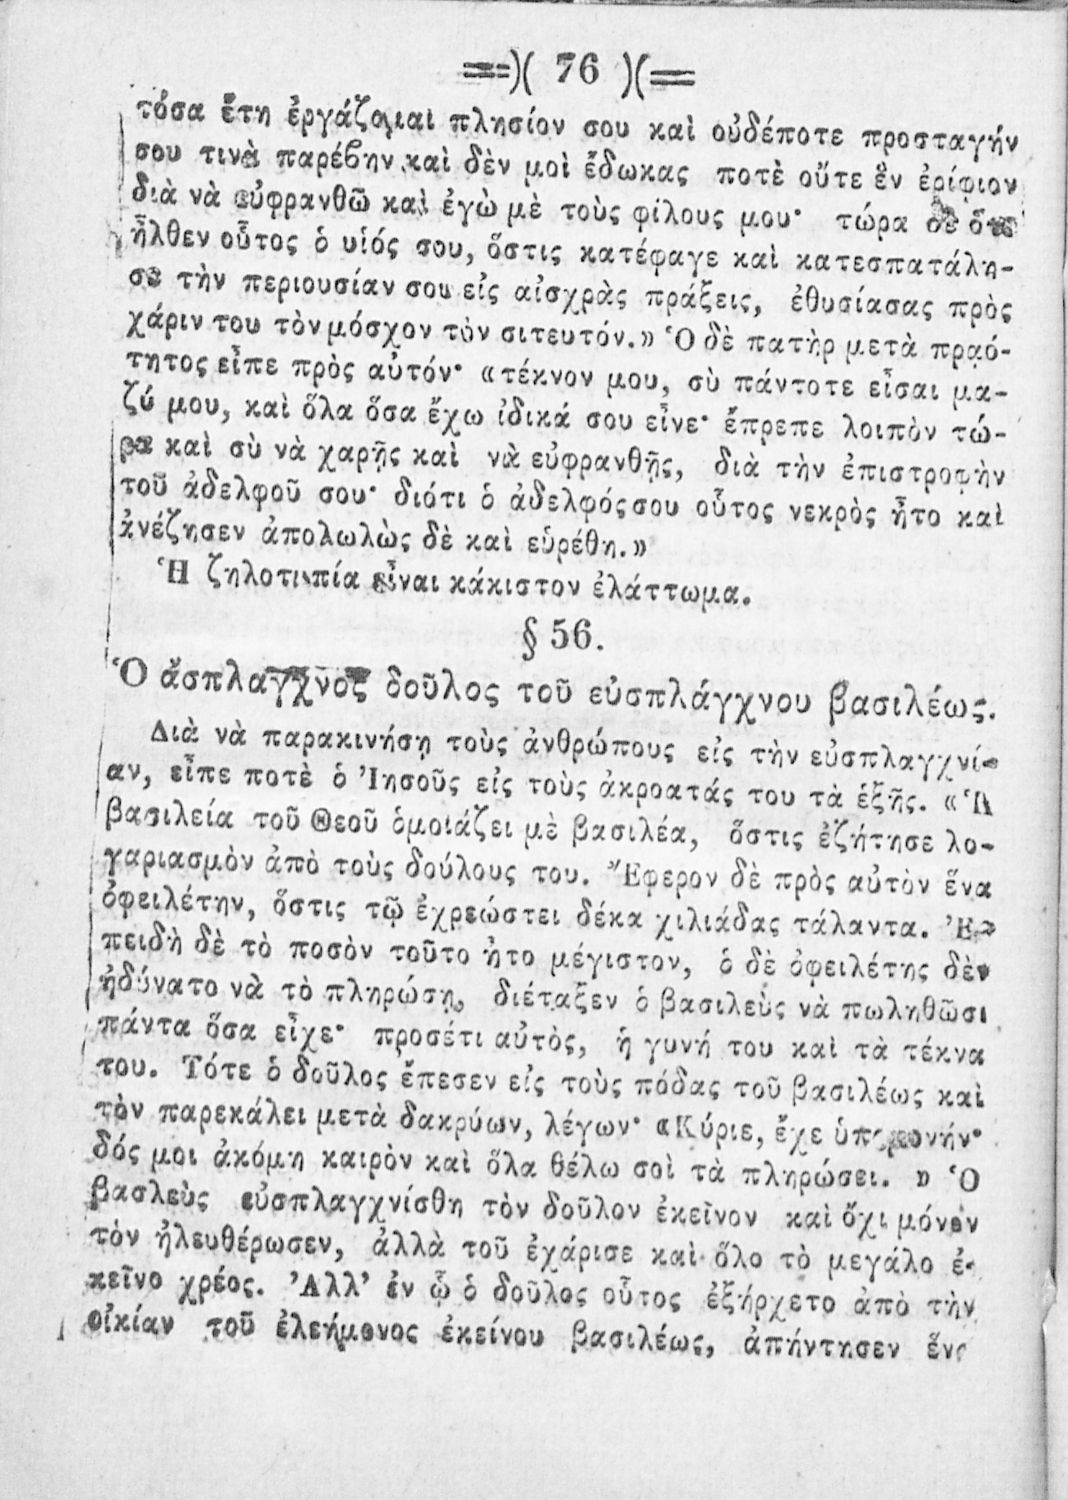 =)( 76 )(=
τόσα ἔτη ἐργάζομαι πλησίον σου καὶ οὐδέποτε προσταγήν
σου τινὰ παρέβην καὶ δὲν μοὶ ἔδωκας ποτὲ οὔτε ἓν ἐρίφιον
διὰ νὰ εὐφρανθῶ καὶ ἐγὼ μὲ τοὺς φίλους μου· τώρα δὲ
ἦλθεν οὗτος ὁ υἱός σου, ὅστις κατέφαγε καὶ κατεσπατάλη-
σε τὴν περιουσίαν σου εἰς αἰσχρὰς πράξεις, ἐθυσίασας πρὸς
χάριν του τὸν μόσχον τὸν σιτευτόν.» Ὁ δὲ πατὴρ μετὰ πραό-
τητος εἶπε πρὸς αὐτόν· «τέκνον μου, σὺ πάντοτε εἶσαι μα-
ζύ μου, καὶ ὅλα ὅσα ἔχω ἰδικά σου εἶνε· ἔπρεπε λοιπὸν τώ-
ρα καὶ σὺ νὰ χαρῇς καὶ νὰ εὐφρανθῇς, διὰ τὴν ἐπιστροφὴν
τοῦ ἀδελφοῦ σου· διότι ὁ ἀδελφός σου οὗτος νεκρὸς ἦτο καὶ
ἀνέζησεν ἀπολωλὼς δὲ καὶ εὑρέθη.»
Ἡ ζηλοτυπία εἶναι κάκιστον ἐλάττωμα.
§ 56.
Ὁ ἄσπλαγχνος δοῦλος τοῦ εὐσπλάγχνου βασιλέως.
Διὰ νὰ παρακινήσῃ τοὺς ἀνθρώπους εἰς τὴν εὐσπλαγχνί-
αν, εἶπε ποτὲ ὁ Ἰησοῦς εἰς τοὺς ἀκροατάς του τὰ ἑξῆς. «Ἡ
βασιλεία τοῦ Θεοῦ ὁμοιάζει μὲ βασιλέα, ὅστις ἐζήτησε λο-
γαριασμὸν ἀπὸ τοὺς δούλους του. Ἔφερον δὲ πρὸς αὐτὸν ἕνα
ὀφειλέτην, ὅστις τῷ ἐχρεώστει δέκα χιλιάδας τάλαντα. Ἐ-
πειδὴ δὲ τὸ ποσὸν τοῦτο ἦτο μέγιστον, ὁ δὲ ὀφειλέτης δὲν
ἠδύνατο νὰ τὸ πληρώσῃ, διέταξεν ὁ βασιλεὺς νὰ πωληθῶσι
πάντα ὅσα εἶχε· προσέτι αὐτὸς, ἡ γυνή του καὶ τὰ τέκνα
του. Τότε ὁ δοῦλος ἔπεσεν εἰς τοὺς πόδας τοῦ βασιλέως καὶ
τὸν παρεκάλει μετὰ δακρύων, λέγων· «Κύριε, ἔχε ὑπομονήν·
δός μοι ἀκόμη καιρὸν καὶ ὅλα θέλω σοὶ τὰ πληρώσει. » Ὁ
βασλεὺς εὐσπλαγχνίσθη τὸν δοῦλον ἐκεῖνον καὶ ὄχι μόνον
τὸν ἠλευθέρωσεν, ἀλλὰ τοῦ ἐχάρισε καὶ ὅλο τὸ μεγάλο ἐ-
κεῖνο χρέος. Ἀλλ' ἐν ᾧ ὁ δοῦλος οὗτος ἐξήρχετο ἀπὸ τὴν
οἰκίαν τοῦ ἐλεήμονος ἐκείνου βασιλέως, ἀπήντησεν